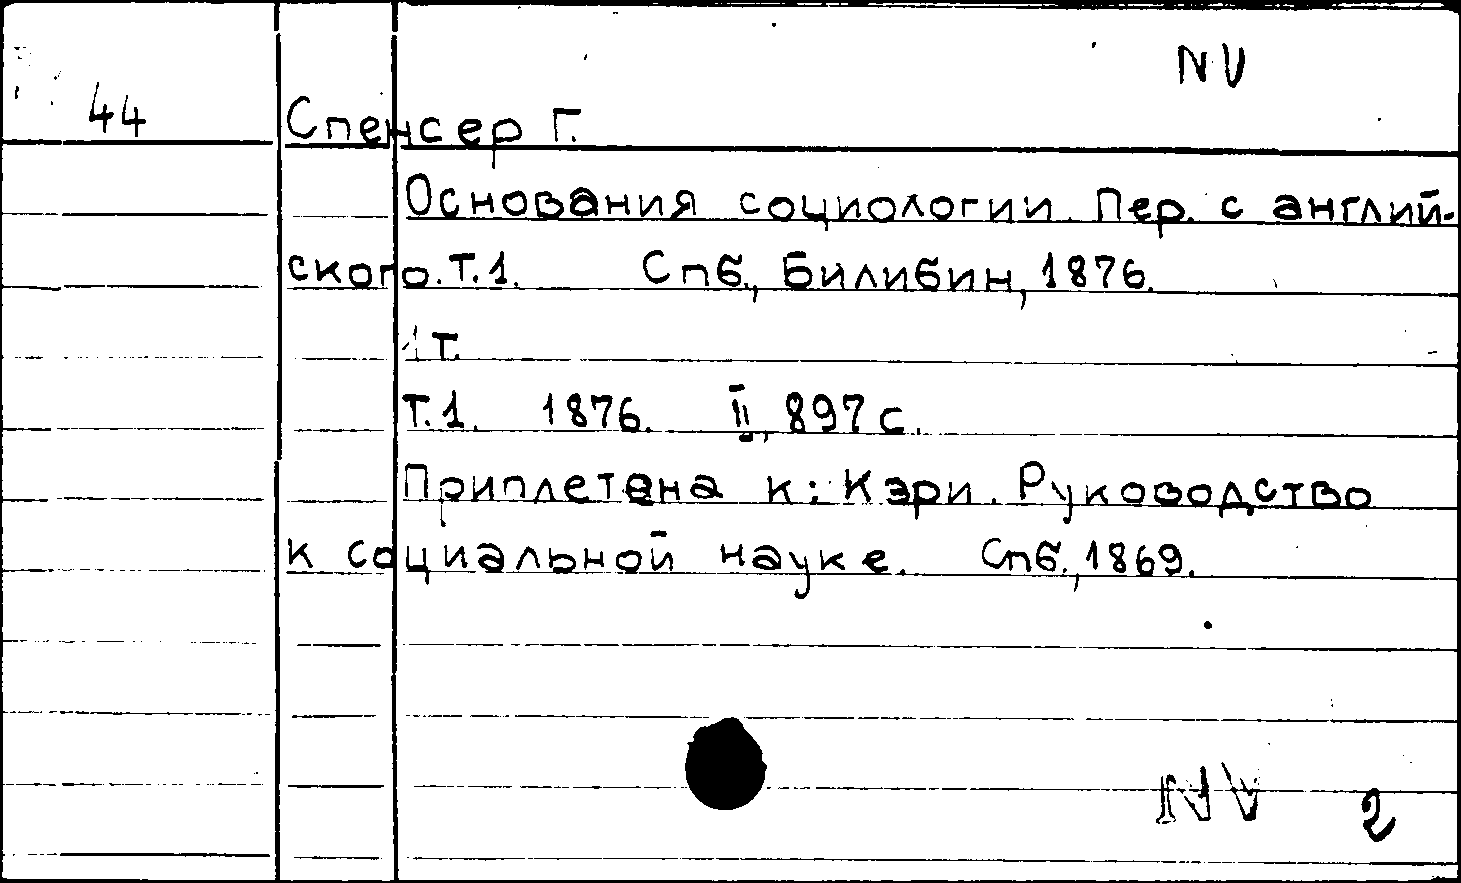 NV
44 Спенсер Г.
Основания социологии. Пер. с англий-
ского. Т.1. Спб., Билибин, 1876.
1 т.
Т.1. 1876. II, 897 с.
Приплетена к: Кэри. Руководство
к социальной науке. Спб., 1869.
NV 2